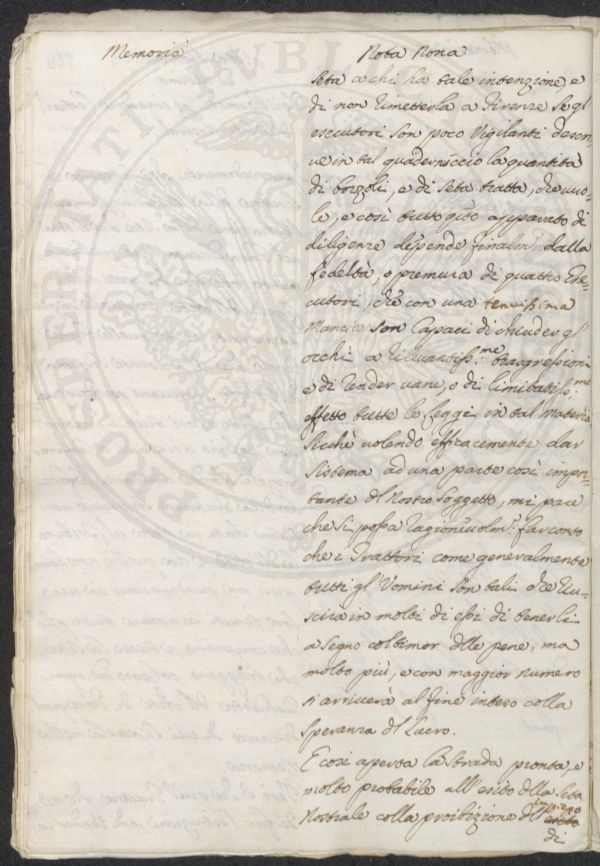 Memoria
Nota Nona
Seta a chi ha tale intenzione, e
di non rimetterla a Firenze se gl
esecutori son poco vigilanti descri-
ve in tal quadernuccio la quantità
di bozzoli, e di seta tratta, che vuo-
le, e così tutto q̃to apparato di
diligenze depende finalm.te dalla
fedeltà, o premura di quattro Ese-
cutori, che con una tenuissima
Mancia son capaci di chiuder gl
occhi a rilevantiss.me trasgressioni
e di render vane, o di limitatiss.mo
effetto tutte le Leggi in tal materia
Sicchè volendo efficacemente dar
sistema ad una parte così impor-
tante dl Nostro Soggetto, mi pare
che si possa ragionevolm.e far conto
che i Trattori come generalmente
tutti gl'Uomini son tali che riu-
scirà in molti di essi di tenerli
a segno col timor dlle pene, ma
molto più, e con maggior numero
si arriverà al fine inteso colla
speranza dl Lucro.
E così aperta la strada pronta, e
molto probabile all'esito dlla Seta
Nostrale colla proibizione dll'
di
PROSPERITATI PUBL